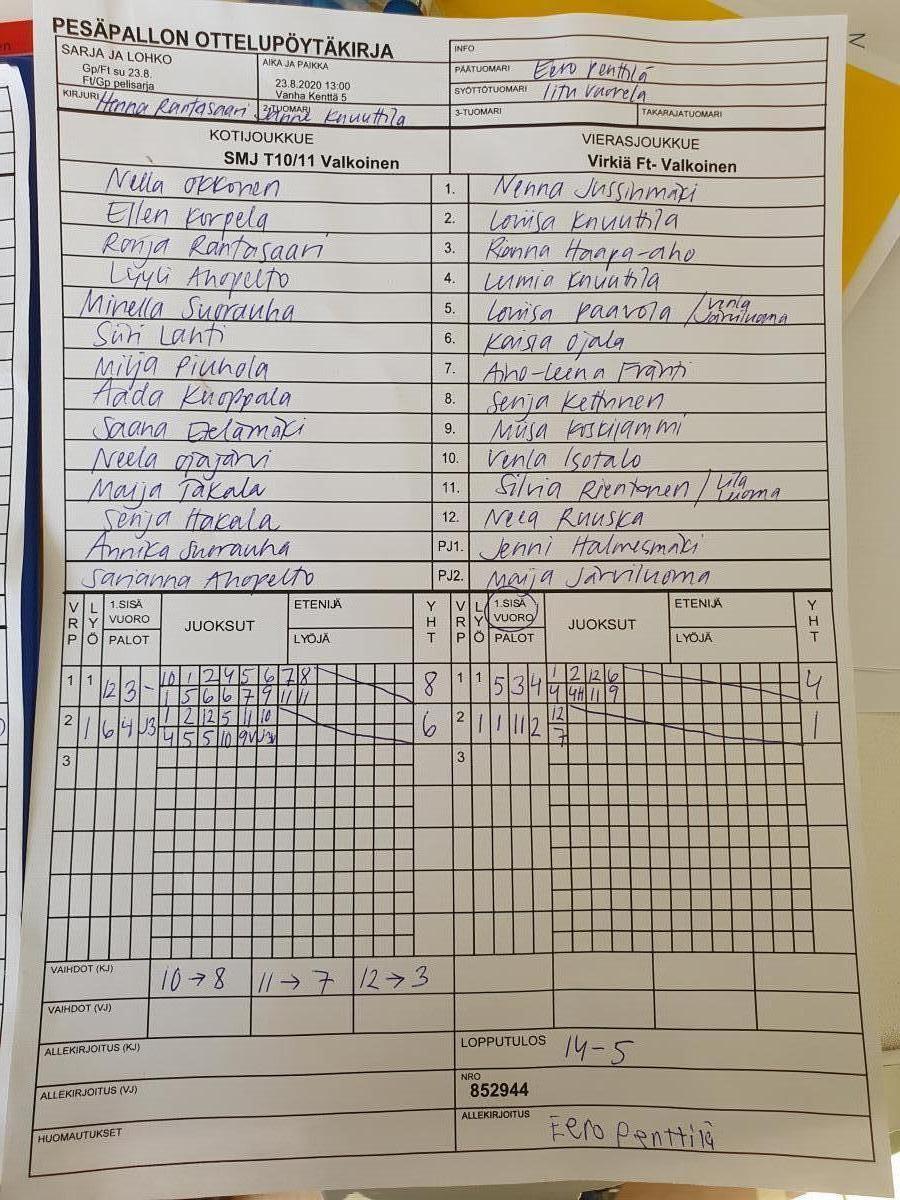 PESÄPALLON OTTELUPÖYTÄKIRJA
SARJA JA LOHKO
Gp/Ft su 23.8.
Ft/Gp pelisarja
AIKA JA PAIKKA
23.8.2020 13:00
Vanha Kenttä 5
INFO
PÄÄTUOMARI Eero Penttilä
SYÖTTÖTUOMARI Iitu Vuorela
KIRJURI Henna Rantasaari
2-TUOMARI Knuuttila
3-TUOMARI
TAKARAJATUOMARI
KOTIJOUKKUE
SMJ T10/11 Valkoinen
VIERASJOUKKUE
Virkiä Ft- Valkoinen
Nella Okkonen 1. Nenna Jussinmäki
Ellen Korpela 2. Louisa Knuuttila
Ronja Rantasaari 3. Rionna Haapa-aho
Lyyli Ahopelto 4. Lumia Knuutila
Minella Suorauha 5. Louisa Paavola / Venla Järviluoma
Siiri Lahti 6. Kaisla Ojala
Milja Piuhola 7. Aino-Leena Fränti
Aada Kuoppala 8. Senja Kettunen
Saana Etelämäki 9. Miisa Koskilammi
Neela Ojajärvi 10. Venla Isotalo
Maija Takala 11. Silvia Rientonen / Luoma
Senja Hakala 12. Neea Ruuska
Annika Suorauha PJ1. Jenni Halmesmäki
Sarianna Ahopelto PJ2. Maija Järviluoma
VRP LYÖ 1.SISÄ VUORO PALOT JUOKSUT ETENIJÄ LYÖJÄ YHT VRP LYÖ 1.SISÄ VUORO PALOT JUOKSUT ETENIJÄ LYÖJÄ YHT
1 1 12 3 - 10 1 2 4 5 6 7 8 8 1 1 5 3 4 1 2 12 6 4
1 5 6 6 7 9 11 11 4 4H 11 9
2 1 6 4 J3 1 2 12 5 11 10 6 2 1 1 11 2 12 1
4 5 5 10 9 7
3 3
VAIHDOT (KJ) 10→8 11→7 12→3
VAIHDOT (VJ)
ALLEKIRJOITUS (KJ)
LOPPUTULOS 14-5
ALLEKIRJOITUS (VJ)
NRO
852944
HUOMAUTUKSET
ALLEKIRJOITUS
Eero Penttilä